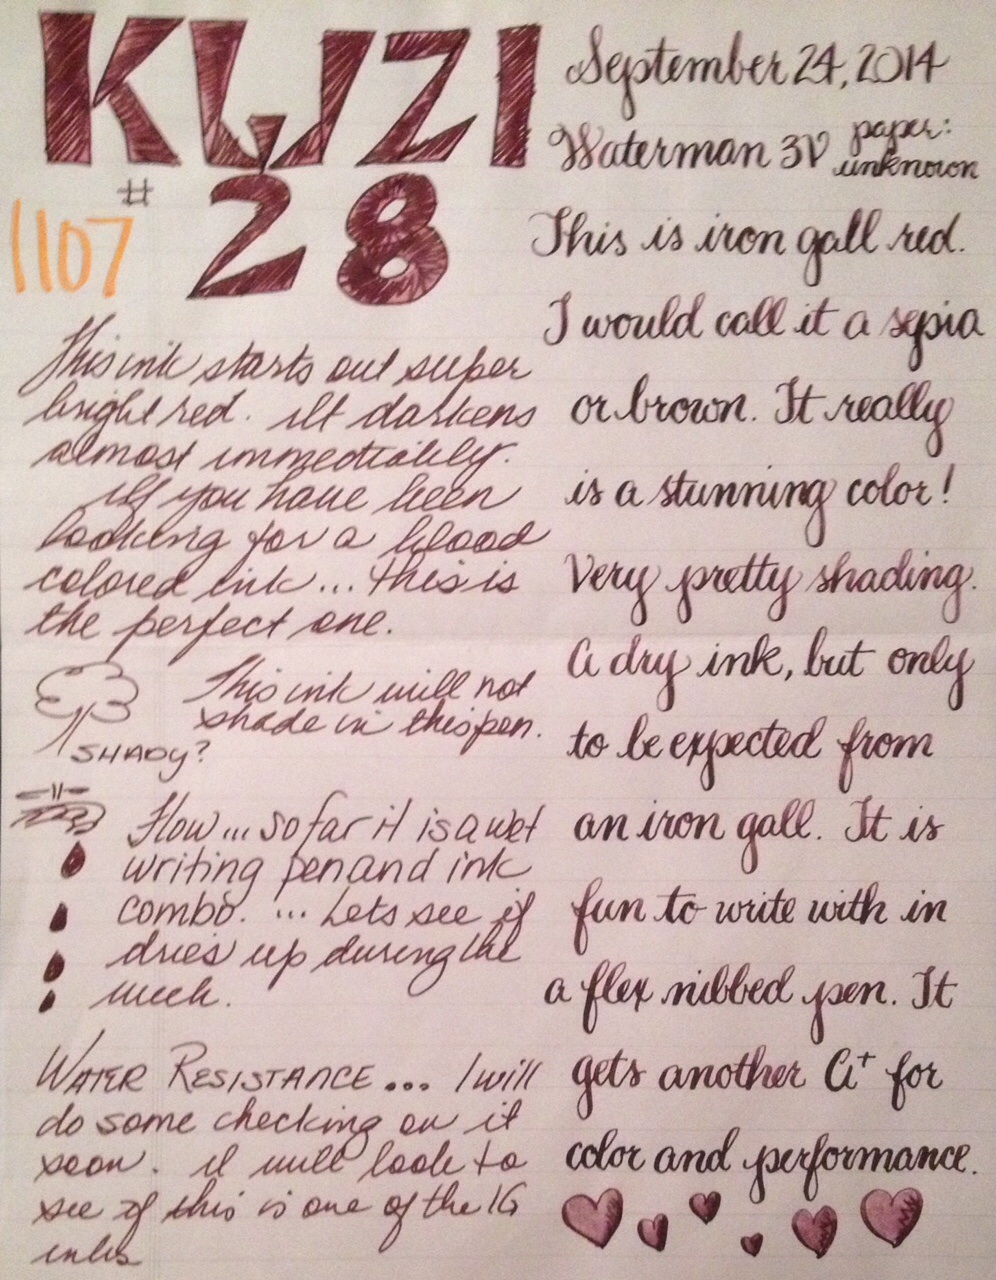 KWZI
# 28
1107
This ink starts out super
bright red. It darkens
almost immediately.
If you have been
looking for a blood
colored ink... this is
the perfect one.
This ink will not
shade in this pen.
SHADY?
Flow... so far it is a wet
writing pen and ink
combo. ... Lets see if
dries up during the
week.
WATER RESISTANCE... I will
do some checking on it
soon. it will look to
see if this is one of the IG
inks
September 24, 2014
Waterman 3V paper:
unknown
This is iron gall red.
I would call it a sepia
or brown. It really
is a stunning color!
Very pretty shading.
A dry ink, but only
to be expected from
an iron gall. It is
fun to write with in
a flex nibbed pen. It
gets another A+ for
color and performance.